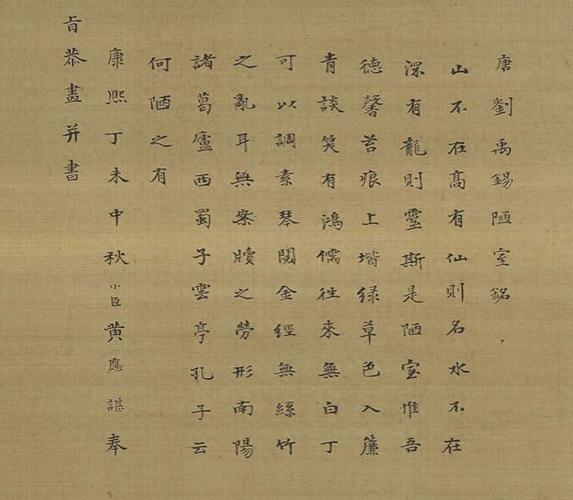 唐劉禹錫陋室銘
山不在髙有仙則名水不在
深有龍則靈斯是陋室惟吾
德馨苔痕上堦緑草色入簾
青談笑有鴻儒徃來無白丁
可以調素琴閱金經無絲竹
之亂耳無案牘之勞形南陽
諸葛廬西蜀子雲亭孔子云
何陋之有
康熙丁未中秋小臣黄應諶奉
旨恭畫并書